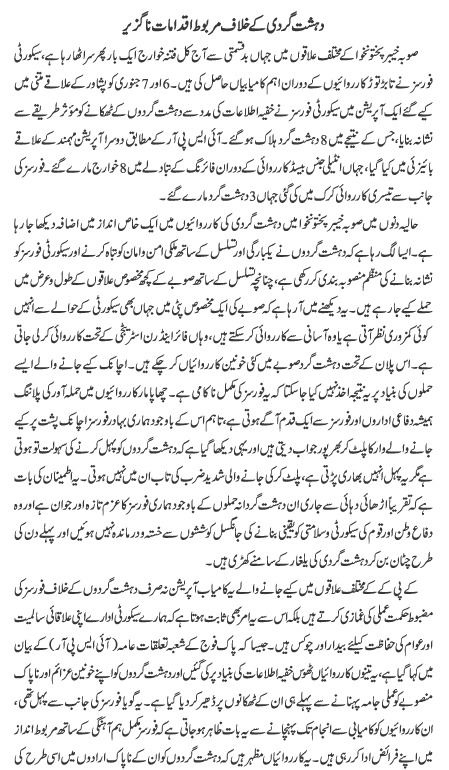 دہشت گردی کے خلاف مربوط اقدامات ناگزیر
صوبہ خیبر پختونخوا کے مختلف علاقوں میں جہاں بدقسمتی سے آج کل فتنہ خوارج ایک بار پھر سر اٹھا رہا ہے، سیکورٹی
فورسز نے تابڑ توڑ کارروائیوں کے دوران اہم کامیابیاں حاصل کی ہیں۔ 6 اور 7 جنوری کو پشاور کے علاقے متنی میں
کیے گئے ایک آپریشن میں سیکورٹی فورسز نے خفیہ اطلاعات کی مدد سے دہشت گردوں کے ٹھکانے کو مؤثر طریقے سے
نشانہ بنایا، جس کے نتیجے میں 8 دہشت گرد ہلاک ہو گئے۔ آئی ایس پی آر کے مطابق دوسرا آپریشن مہمند کے علاقے
بائیزئی میں کیا گیا، جہاں انٹیلی جنس بیسڈ کارروائی کے دوران فائرنگ کے تبادلے میں 8 خوارج مارے گئے۔ فورسز کی
جانب سے تیسری کارروائی کرک میں کی گئی جہاں 3 دہشت گرد مارے گئے۔
حالیہ دنوں میں صوبہ خیبر پختونخوا میں دہشت گردی کی کارروائیوں میں ایک خاص انداز میں اضافہ دیکھا جا رہا
ہے۔ ایسا لگ رہا ہے کہ دہشت گردوں نے یکبارگی اور تسلسل کے ساتھ ملکی امن و امان کو تباہ کرنے اور سیکورٹی فورسز کو
نشانہ بنانے کی منظم منصوبہ بندی کر رکھی ہے، چنانچہ تسلسل کے ساتھ صوبے کے کچھ مخصوص علاقوں کے طول و عرض میں
حملے کیے جا رہے ہیں۔ یہ دیکھنے میں آ رہا ہے کہ صوبے کی ایک مخصوص پٹی میں جہاں بھی سیکورٹی کے حوالے سے انہیں
کوئی کمزوری نظر آتی ہے یا وہ آسانی سے کارروائی کر سکتے ہیں، وہاں فائر اینڈ رن اسٹریٹجی کے تحت کارروائی کر لی جاتی
ہے۔ اس پلان کے تحت دہشت گرد صوبے میں کئی خونین کارروائیاں کر چکے ہیں۔ اچانک کیے جانے والے ایسے
حملوں کی بنیاد پر یہ نتیجہ اخذ نہیں کیا جا سکتا کہ یہ فورسز کی مکمل ناکامی ہے۔ چھاپا مار کارروائیوں میں حملہ آور کی پلاننگ
ہمیشہ دفاعی اداروں اور فورسز سے ایک قدم آگے ہوتی ہے، تاہم اس کے باوجود ہماری بہادر فورسز اچانک پشت پر کیے
جانے والے وار کا پلٹ کر بھرپور جواب دیتی ہیں اور یہی دیکھا گیا ہے کہ دہشت گردوں کو پہل کرنے کی سہولت تو ہوتی
ہے مگر یہ پہل انہیں بھاری پڑتی ہے، پلٹ کر کی جانے والی شدید ضرب کی تاب ان میں نہیں ہوتی۔ یہ اطمینان کی بات
ہے کہ تقریباً اڑھائی دہائی سے جاری ان دہشت گردانہ حملوں کے باوجود ہماری فورسز کا عزم تازہ اور جوان ہے اور وہ
دفاع وطن اور قوم کی سیکورٹی و سلامتی کو یقینی بنانے کی جانگسل کوششوں سے خستہ و درماندہ نہیں ہوئیں اور پہلے دن کی
طرح چٹان بن کر دہشت گردی کی یلغار کے سامنے کھڑی ہیں۔
کے پی کے کے مختلف علاقوں میں کیے جانے والے یہ کامیاب آپریشن نہ صرف دہشت گردوں کے خلاف فورسز کی
مضبوط حکمت عملی کی غمازی کرتے ہیں بلکہ اس سے یہ امر بھی ثابت ہوتا ہے کہ ہمارے سیکورٹی ادارے اپنی علاقائی سالمیت
اور عوام کی حفاظت کیلئے بیدار اور چوکس ہیں۔ جیسا کہ پاک فوج کے شعبہ تعلقات عامہ (آئی ایس پی آر) کے بیان
میں کہا گیا ہے، یہ تینوں کارروائیاں ٹھوس خفیہ اطلاعات کی بنیاد پر کی گئیں اور دہشت گردوں کو اپنے خونین عزائم اور ناپاک
منصوبے کو عملی جامہ پہنانے سے پہلے ہی ان کے ٹھکانوں پر ڈھیر کر دیا گیا ہے۔ یہ گویا فورسز کی جانب سے پہل تھی،
ان کارروائیوں کو کامیابی سے انجام تک پہنچانے سے یہ بات ظاہر ہو جاتی ہے کہ فورسز مکمل ہم آہنگی کے ساتھ مربوط انداز
میں اپنے فرائض ادا کر رہی ہیں۔ یہ کارروائیاں مظہر ہیں کہ دہشت گردوں کو ان کے ناپاک ارادوں میں اسی طرح کی